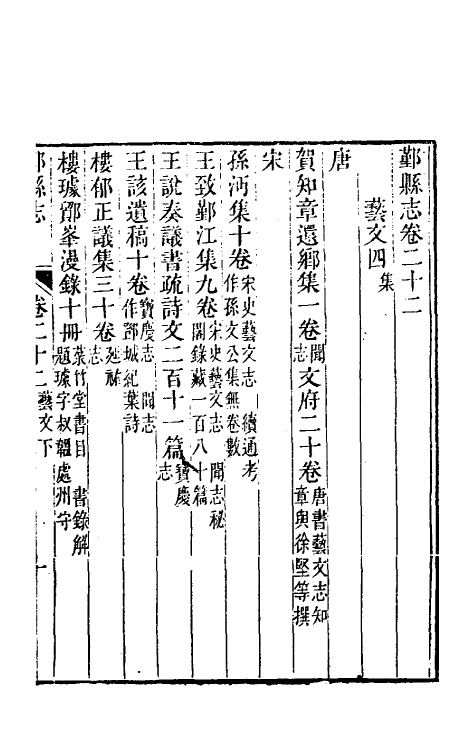 鄞縣志卷二十二
藝文四集
唐
賀知章還鄉集一卷聞志文府二十卷唐書藝文志知章與徐堅等撰
宋
孫沔集十卷宋史藝文志續通考作孫文公集無卷數
王致鄞江集九卷宋史藝文志聞志秘閣錄藏一百八十篇
王說奏議書疏詩文二百十一篇寶慶志
王該遺稿十卷寶慶志聞志作鄧城紀葉詩
樓郁正議集三十卷延祐志
樓璩鄮峯漫錄十冊菉竹堂書目書錄解題璩字叔韞處州守
鄞縣志 卷二十二藝文下 一